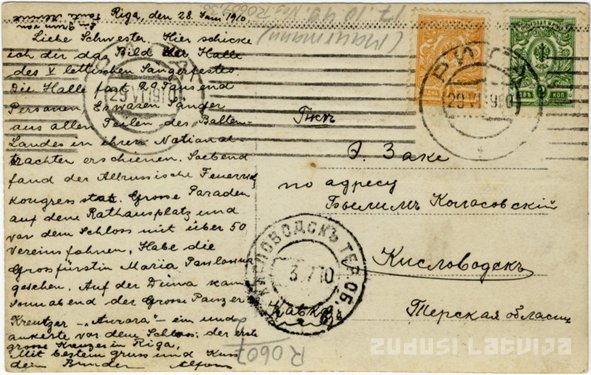 Riga, den 28. Juni 1910
Liebe Schwester. Hier schicke
ich dir das Bild der Halle
des V lettischen Sängerfestes
Die Halle fast 20 Tausend
Personen. Es waren Sänger
aus allen Teilen des Balten-
Landes in ihren National
trachten erschienen. Soebend
fand der Allrussische Feuerwehr
kongress statt. Grosse Paraden
auf dem Rathausplatz und
vor dem Schloss mit über 50
Vereinsfahnen. Habe die
Grossfürstin Maria Pawlowna
gesehen. Auf der Düna kam
Sonnabend der Grosse Panzer
Kreutzer "Aurora" ein und
ankerte vor dem Schloss; der erste
grosse Kreuzer in Riga.
Mit bestem Gruss und Kuss
dein Bruder Alfons
(Maurmann)
17.10.49
R 0607
РИГА
29 VI 910
РИГА
КИСЛОВОДСКЪ ТЕР. ОБ.
3.7.10
Пкъ
Э. Заке
по адресу
Кисловодскъ
Терская область
ZUDUSĪ LATVIJA